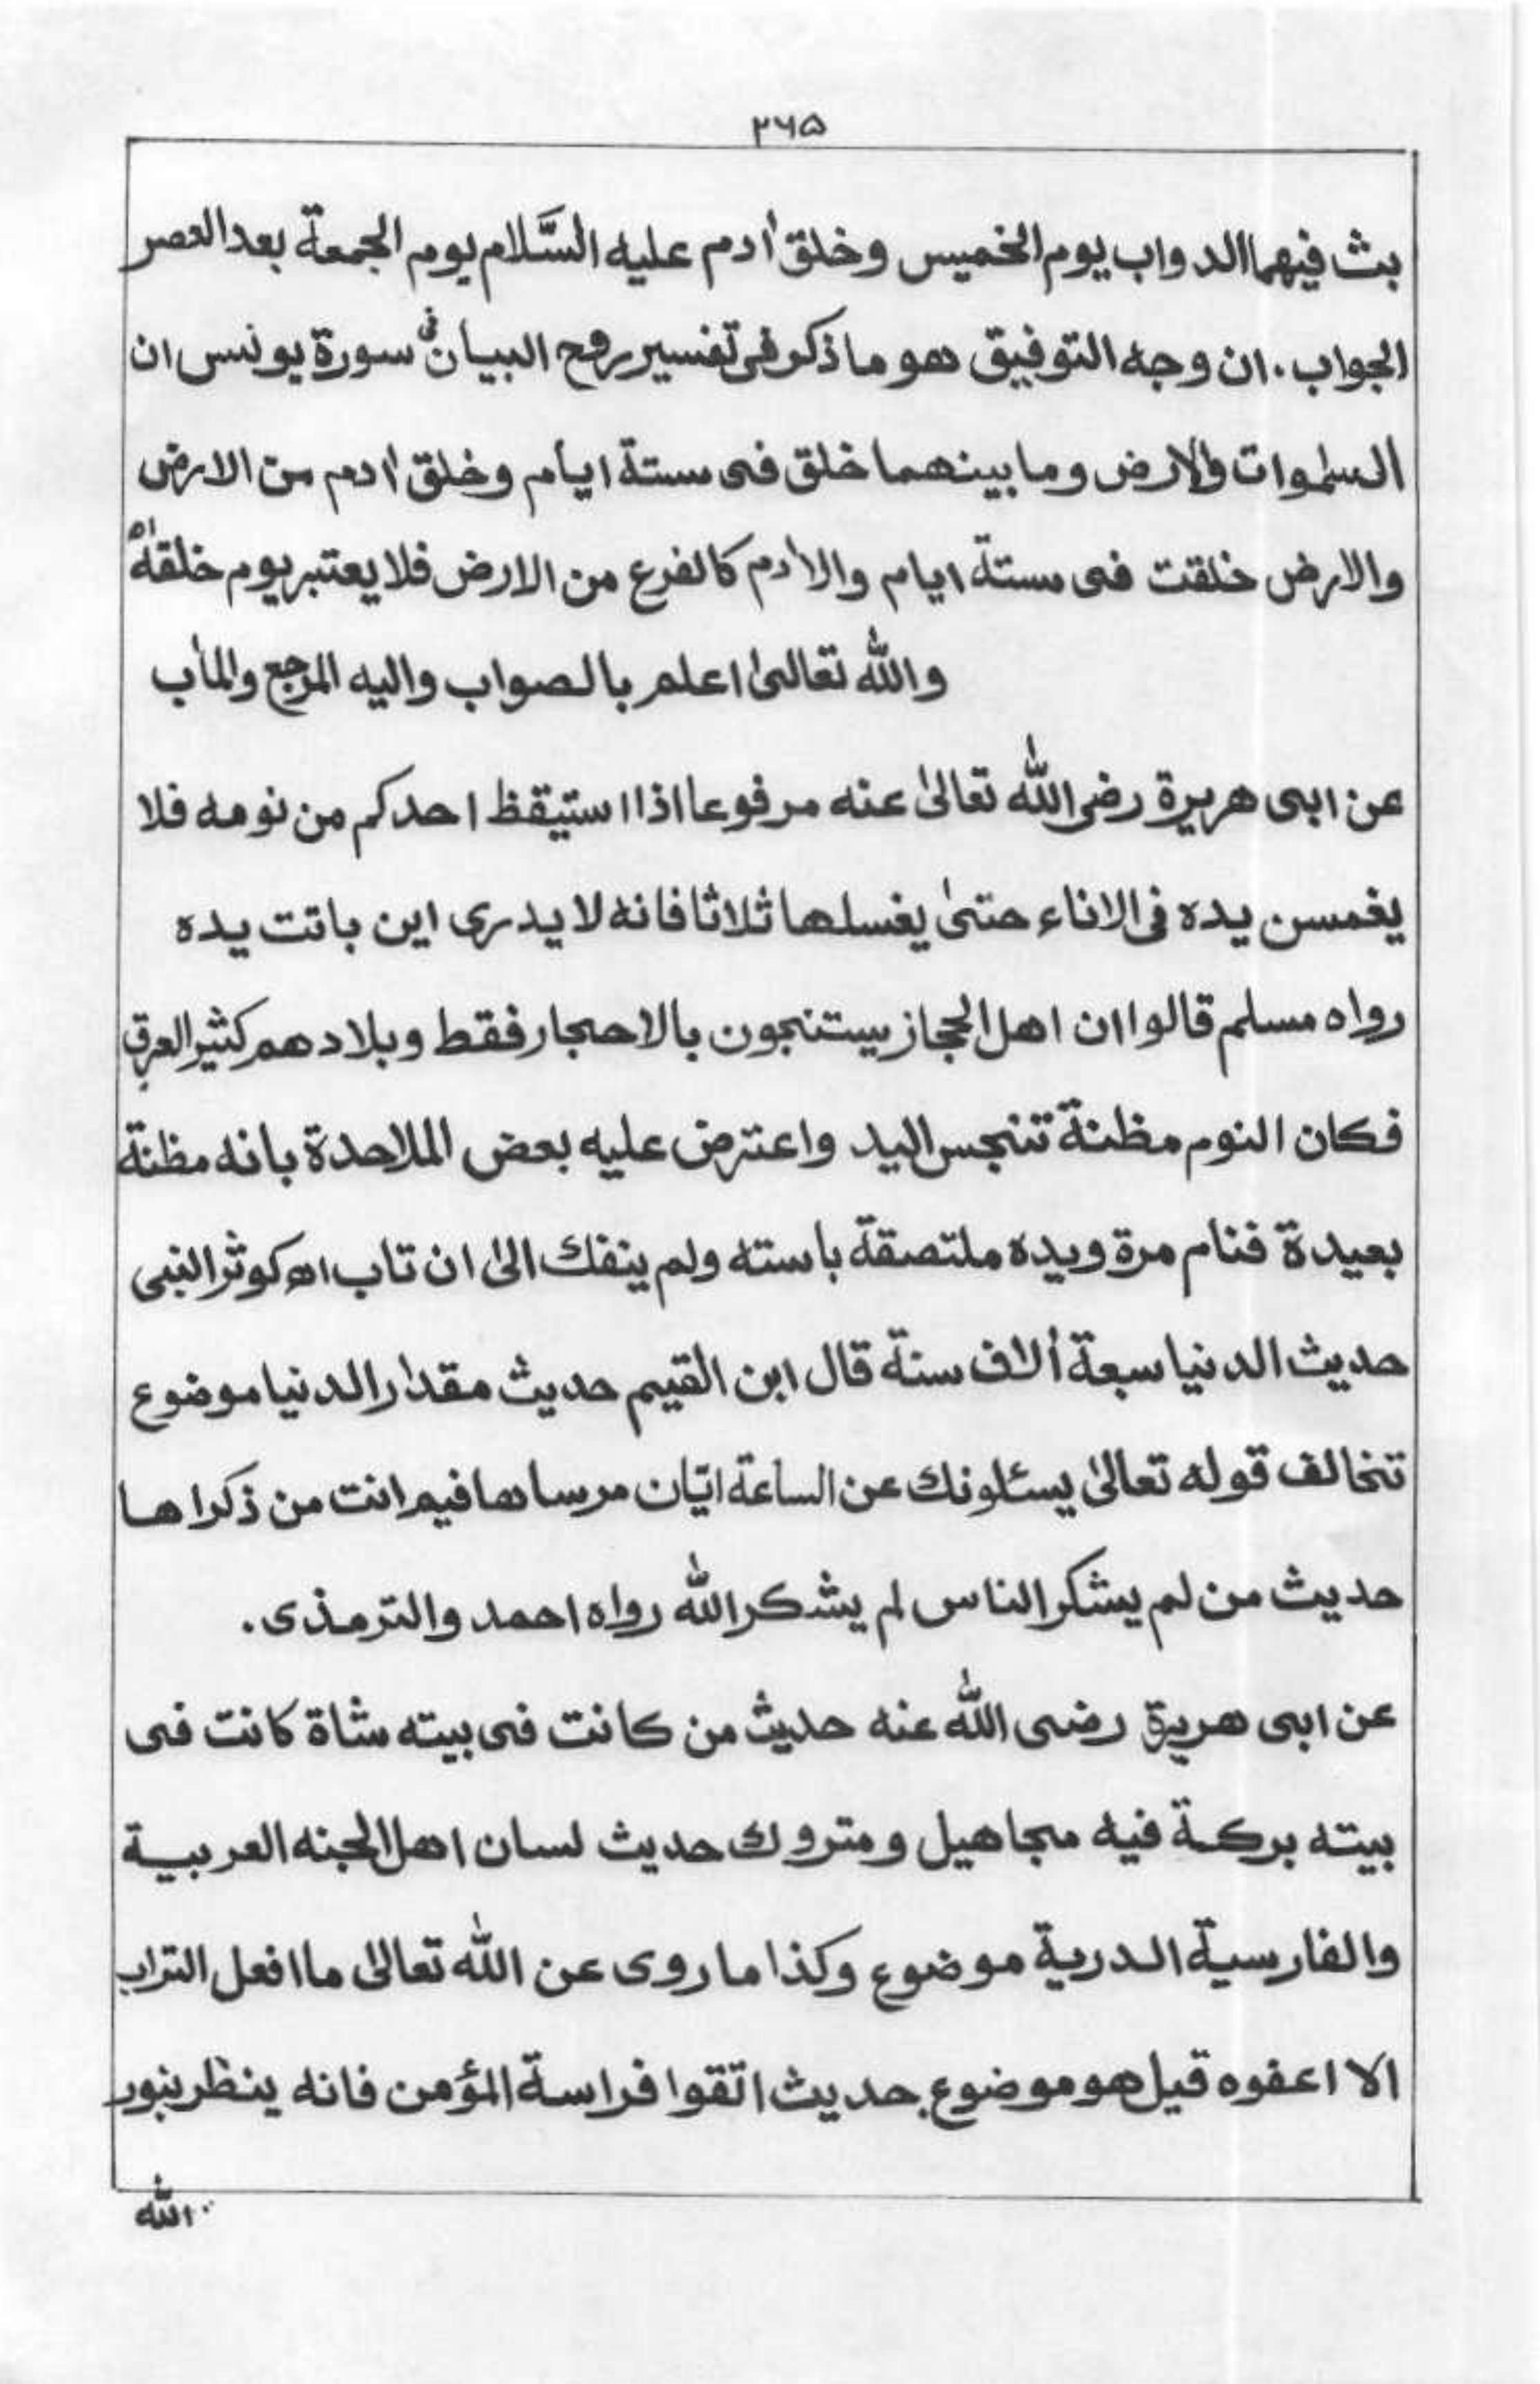 ۲۶۵
بث فيهما الدواب يوم الخميس وخلق اٰدم عليه السَّلام يوم الجمعة بعد العصر
الجواب. ان وجه التوفيق هو ما ذكر فى تفسير روح البيان فى سورة يونس ان
السمٰوات والارض وما بينهما خلق فى ستة ايام وخلق اٰدم من الارض
والارض خلقت فى ستة ايام والاٰدم كالفرع من الارض فلا يعتبر يوم خلقه اھ
والله تعالىٰ اعلم بالصواب واليه المرجع والماٰب
عن ابى هريرة رضى الله تعالىٰ عنه مرفوعا اذا استيقظ احدكم من نومه فلا
يغمسن يده فى الاناء حتىٰ يغسلها ثلاثا فانه لا يدرى اين باتت يده
رواه مسلم قالوا ان اهل الحجاز يستنجون بالاحجار فقط وبلادهم كثير العرق
فكان النوم مظنة تنجس اليد واعترض عليه بعض الملاحدة بانه مظنة
بعيدة فنام مرة ويده ملتصقة باسته ولم ينفك الىٰ ان تاب اھ كوثر النبى
حديث الدنيا سبعة اٰلاف سنة قال ابن القيم حديث مقدار الدنيا موضوع
تخالف قوله تعالىٰ يسئلونك عن الساعة ايّان مرساها فيم انت من ذكراها
حديث من لم يشكر الناس لم يشكر الله رواه احمد والترمذى.
عن ابى هريرة رضى الله عنه حديث من كانت فى بيته شاة كانت فى
بيته بركة فيه مجاهيل ومتروك حديث لسان اهل الجنه العربية
والفارسية الدرية موضوع وكذا ما روى عن الله تعالىٰ ما افعل التراب
الا اعفوه قيل هو موضوع. حديث اتقوا فراسة المؤمن فانه ينظر بنور
الله